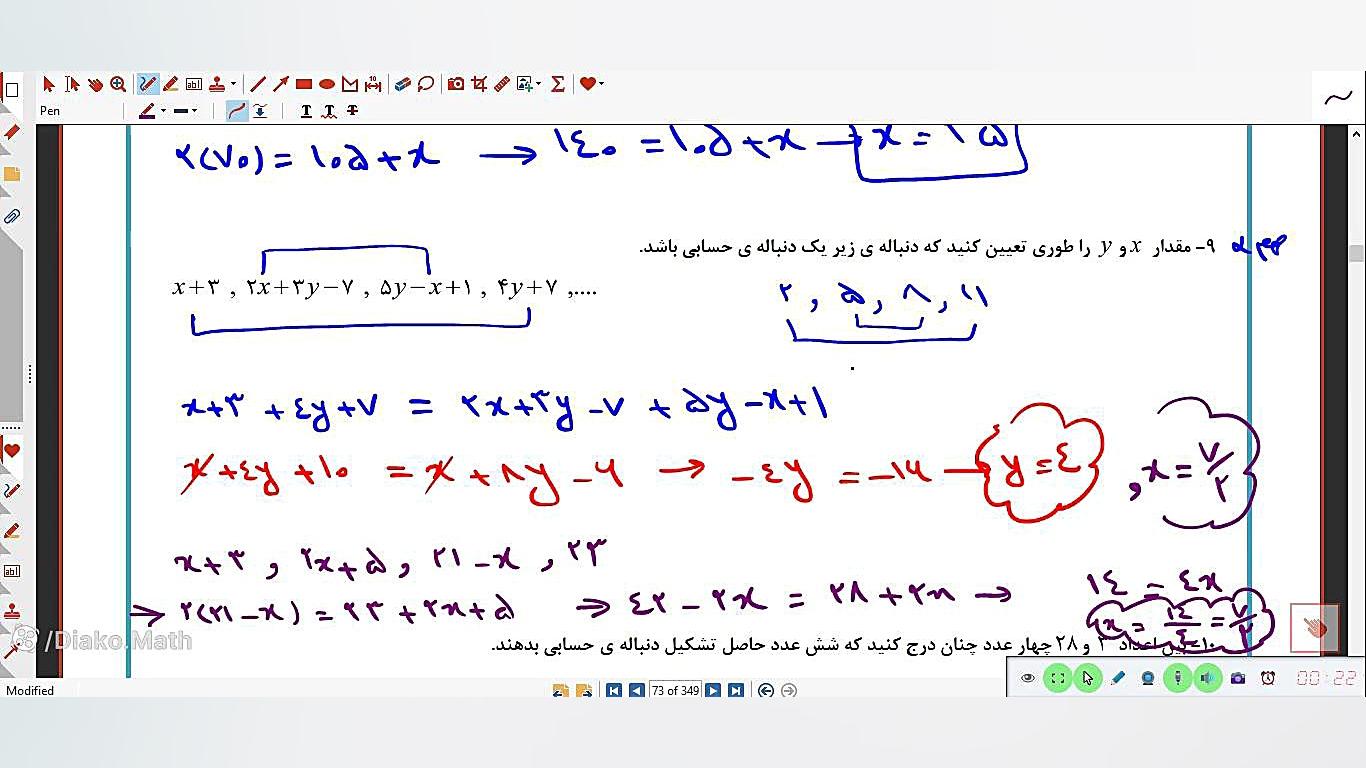 Pen
۲(۷۰) = ۱۰۵ + x → ۱۴۰ = ۱۰۵ + x →
۹- مقدار x و y را طوری تعیین کنید که دنباله ی زیر یک دنباله ی حسابی باشد.
x+۳ , ۲x+۳y−۷ , ۵y−x+۱ , ۴y+۷ ,....
۲ , ۵ , ۸ , ۱۱
x+۳ + ۴y+۷ = ۲x+۳y−۷ + ۵y−x+۱
x + ۴y + ۱۰ = x + ۸y − ۶ → −۴y = −۱۶ → y = ۴ , x = ۷/۲
x+۳ , ۲x+۵ , ۲۱−x , ۲۳
→ ۲(۲۱−x) = ۲۳ + ۲x+۵ ⇒ ۴۲ − ۲x = ۲۸ + ۲x → ۱۴ = ۴x
x = ۱۴/۴ = ۷/۲
/Diako.Math
۱۰- بین اعداد ۳ و ۲۸ چهار عدد چنان درج کنید که شش عدد حاصل تشکیل دنباله ی حسابی بدهند.
Modified
73 of 349
00:22